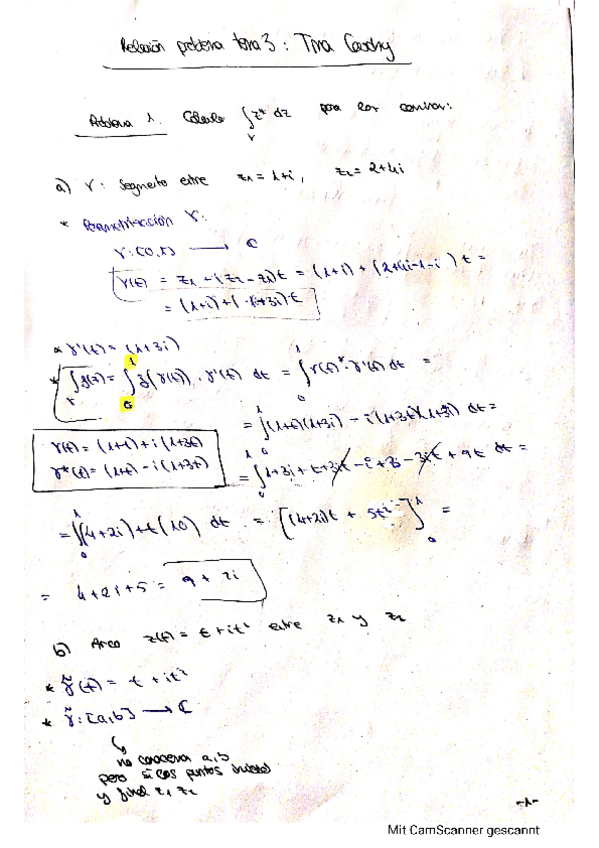 Relación problema tema 3: Tma Cauchy
Problema 1. Calcula ∫_γ z* dz para los caminos:
a) γ: segmento entre z₁ = 1+i, z₂ = 2+4i
* Parametrización γ:
γ: [0,1] → ℂ
γ(t) = z₁ + (z₂ - z₁)t = (1+i) + (2+4i-1-i)t =
= (1+i) + (1+3i)·t
* γ'(t) = (1+3i)
* ∫_γ f(z) = ∫_0^1 f(γ(t)) · γ'(t) dt = ∫_0^1 γ(t)* · γ'(t) dt =
γ(t) = (1+t) + i(1+3t)
γ*(t) = (1+t) - i(1+3t)
= ∫_0^1 (1+t)(1+3i) - i(1+3t)(1+3i) dt =
= ∫_0^1 1+3i + t + 3it - i + 3 - 3it + 9t dt =
= ∫_0^1 (4+2i) + t(10) dt = [(4+2i)t + 5t²]_0^1 =
= 4+2i+5 = 9+2i
b) Arco z(t) = t + it² entre z₁ y z₂
* γ̃(t) = t + it²
* γ̃: [a,b] → ℂ
no conocemos a, b
pero sí los puntos inicial
y final z₁ z₂
-1-
Mit CamScanner gescannt